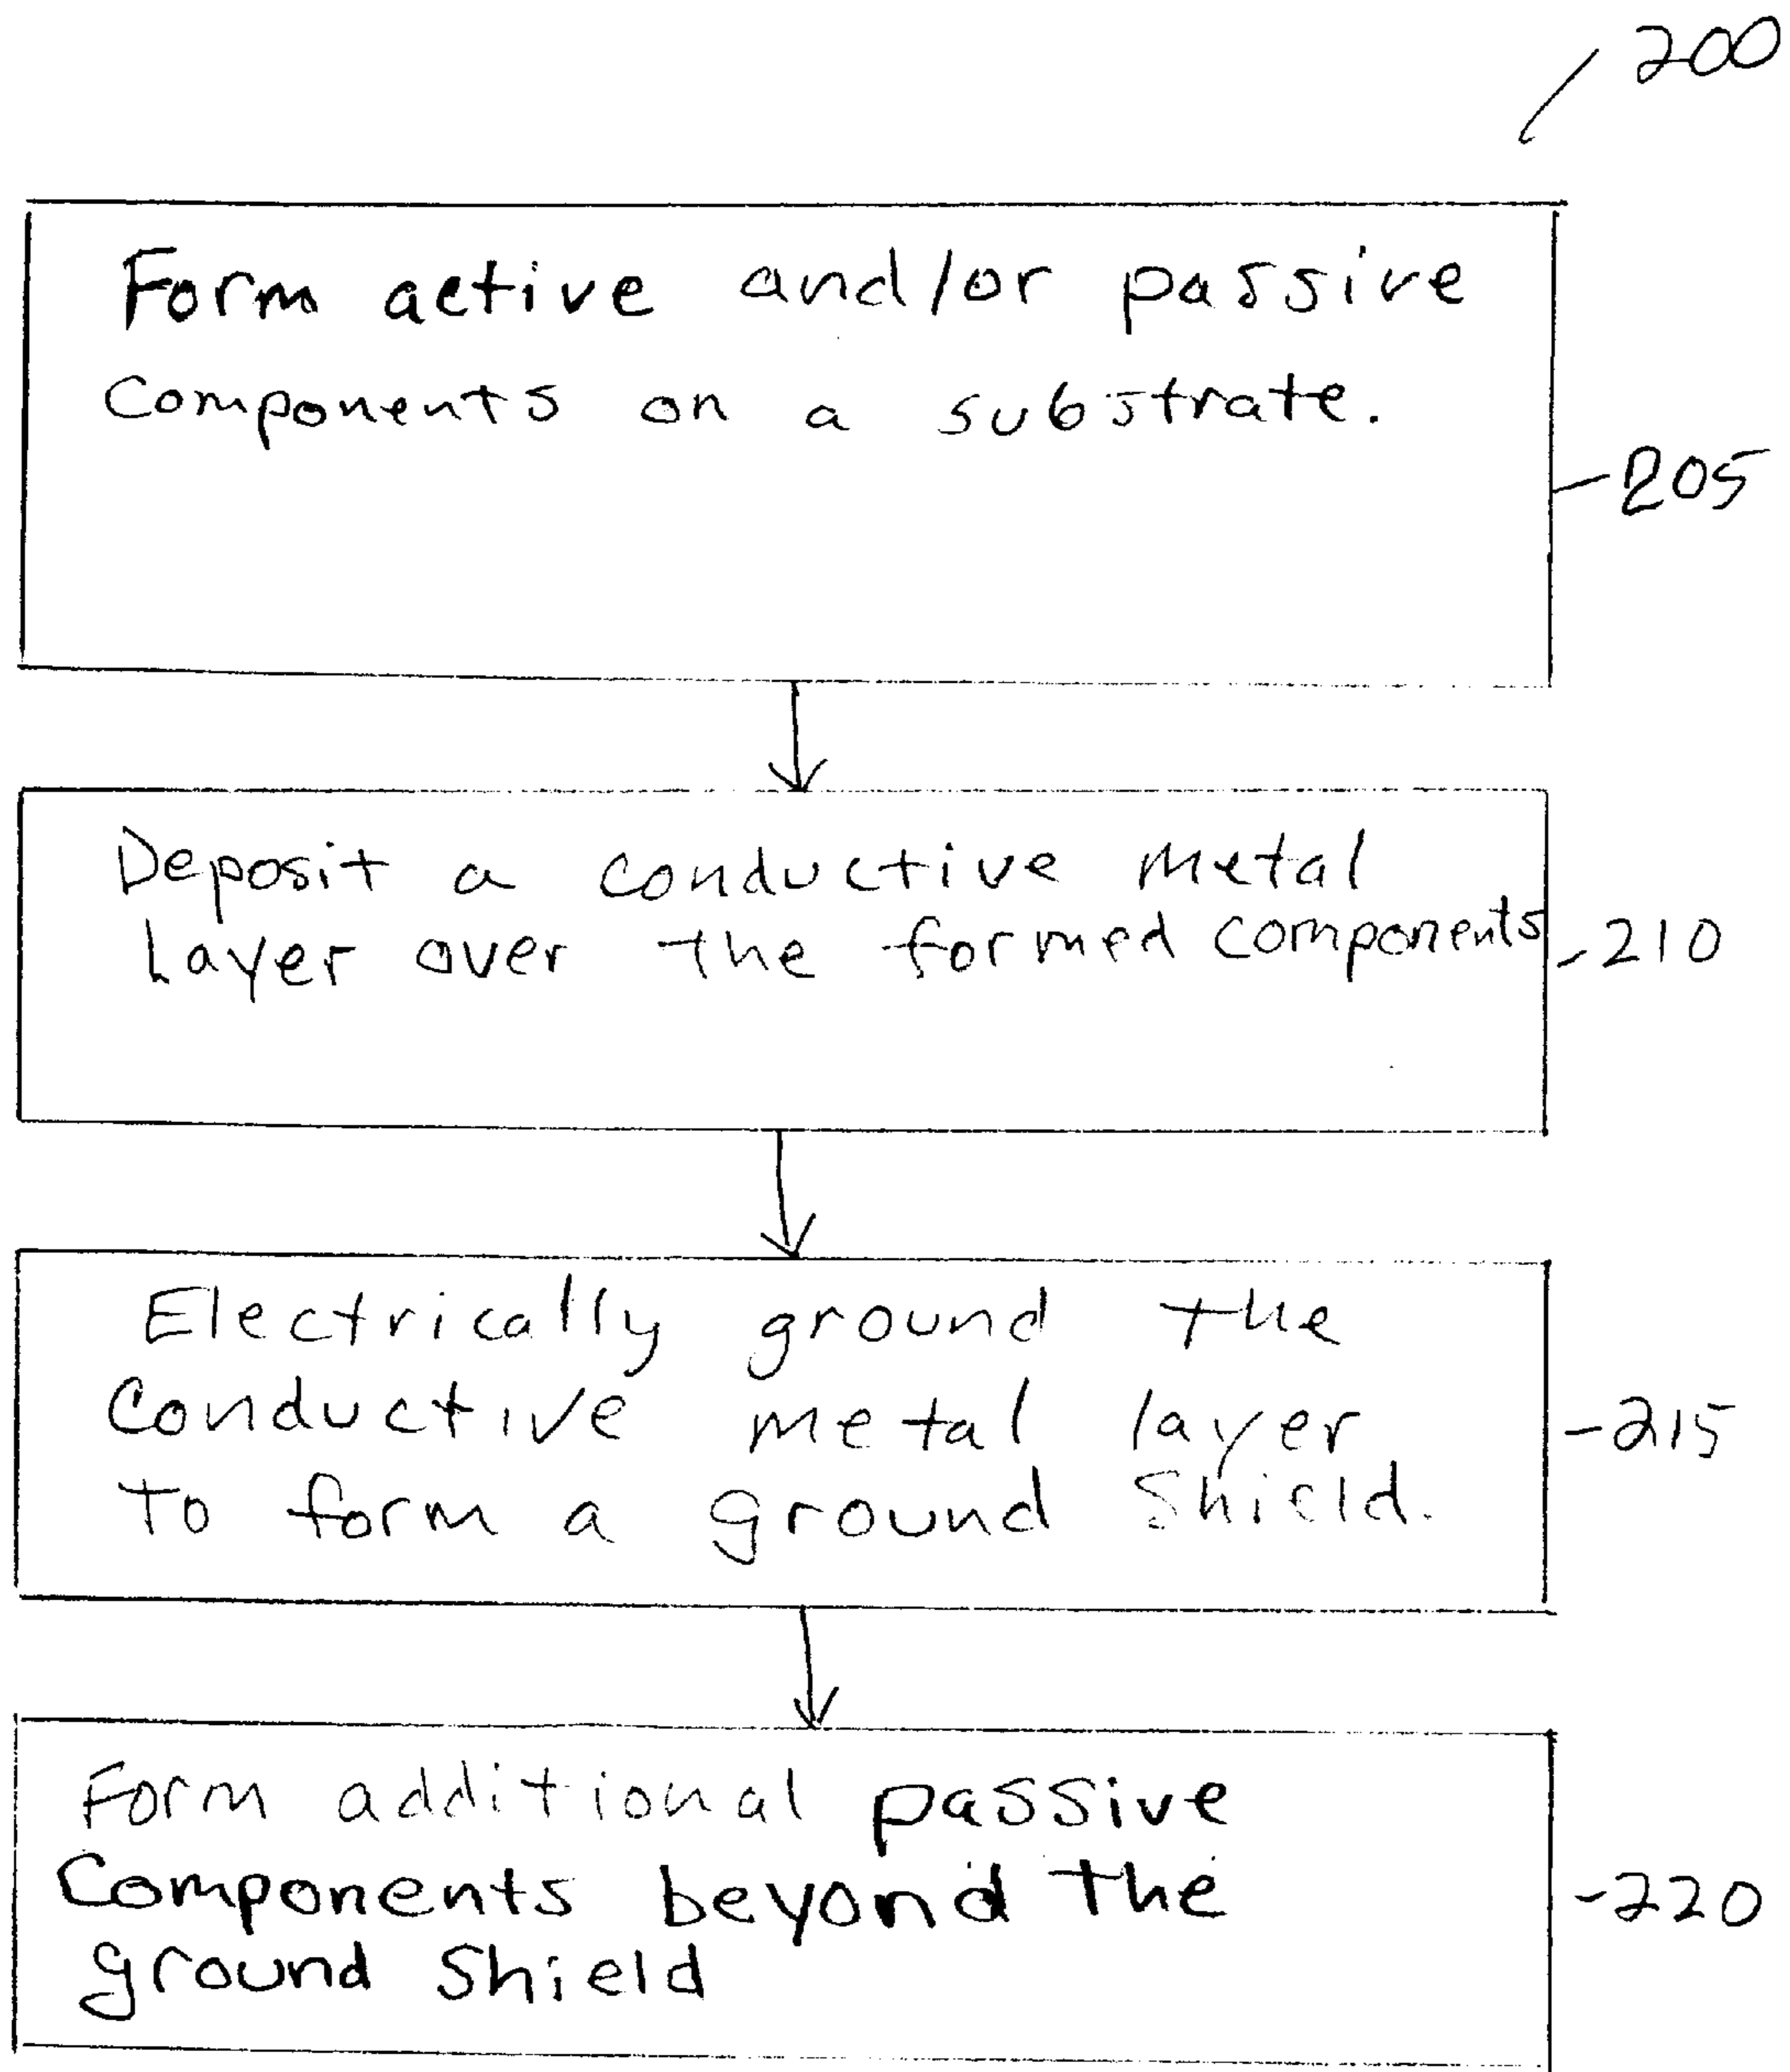 200
Form active and/or passive
Components on a substrate.
205
Deposit a conductive metal
layer over the formed components
210
Electrically ground the
Conductive metal layer
to form a ground shield.
215
Form additional passive
Components beyond the
ground shield
220